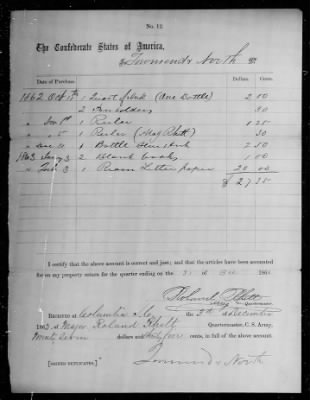 No. 12
The Confederate States of America,
To Townsend & North Dr.
Date of Purchase. Dollars. Cents.
1862 Oct 1 Quart of Ink (One Bottle) 2 00
2 Pen holders 50
" 1 Ruler 1 25
" " 5 1 Ruler (Maj Rhett) 50
" 1 Bottle 2 50
1863 3 2 Blank books 1 00
" 3 1 Ream Letter paper 20 00
$ 27 35
I certify that the above account is correct and just; and that the articles have been accounted
for on my property return for the quarter ending on the 31st Dec 186
Roland Rhett
Major Quartermaster.
Received at Columbia S.C. the 5th of December
1863, of Major Roland Rhett Quartermaster, C. S. Army,
Twenty Seven dollars and thirty five cents, in full of the above account.
Townsend & North
[SIGNED DUPLICATES.]